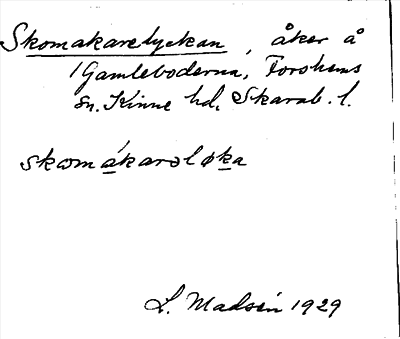 Skomakaretyckan, åker å
Gamleboderna, Forshems
sn. Kinne hd, Skarab. l.
skomákarəløka
L. Madsén 1929